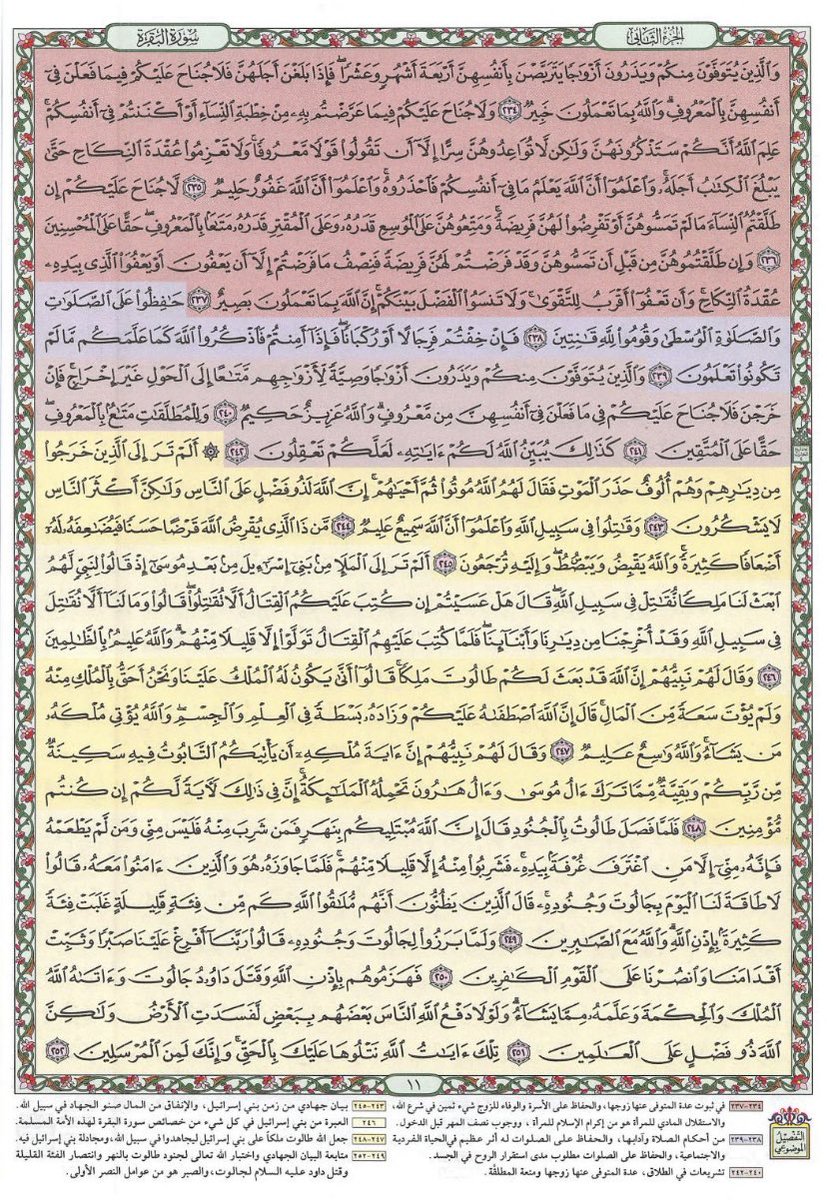 الجزء الثاني
سورة البقرة
وَالَّذِينَ يُتَوَفَّوْنَ مِنكُمْ وَيَذَرُونَ أَزْوَاجًا يَتَرَبَّصْنَ بِأَنفُسِهِنَّ أَرْبَعَةَ أَشْهُرٍ وَعَشْرًا ۖ فَإِذَا بَلَغْنَ أَجَلَهُنَّ فَلَا جُنَاحَ عَلَيْكُمْ فِيمَا فَعَلْنَ فِي
أَنفُسِهِنَّ بِالْمَعْرُوفِ ۗ وَاللَّهُ بِمَا تَعْمَلُونَ خَبِيرٌ ٢٣٤ وَلَا جُنَاحَ عَلَيْكُمْ فِيمَا عَرَّضْتُم بِهِ مِنْ خِطْبَةِ النِّسَاءِ أَوْ أَكْنَنتُمْ فِي أَنفُسِكُمْ ۚ
عَلِمَ اللَّهُ أَنَّكُمْ سَتَذْكُرُونَهُنَّ وَلَٰكِن لَّا تُوَاعِدُوهُنَّ سِرًّا إِلَّا أَن تَقُولُوا قَوْلًا مَّعْرُوفًا ۚ وَلَا تَعْزِمُوا عُقْدَةَ النِّكَاحِ حَتَّىٰ
يَبْلُغَ الْكِتَابُ أَجَلَهُ ۚ وَاعْلَمُوا أَنَّ اللَّهَ يَعْلَمُ مَا فِي أَنفُسِكُمْ فَاحْذَرُوهُ ۚ وَاعْلَمُوا أَنَّ اللَّهَ غَفُورٌ حَلِيمٌ ٢٣٥ لَّا جُنَاحَ عَلَيْكُمْ إِن
طَلَّقْتُمُ النِّسَاءَ مَا لَمْ تَمَسُّوهُنَّ أَوْ تَفْرِضُوا لَهُنَّ فَرِيضَةً ۚ وَمَتِّعُوهُنَّ عَلَى الْمُوسِعِ قَدَرُهُ وَعَلَى الْمُقْتِرِ قَدَرُهُ مَتَاعًا بِالْمَعْرُوفِ ۖ حَقًّا عَلَى الْمُحْسِنِينَ
٢٣٦ وَإِن طَلَّقْتُمُوهُنَّ مِن قَبْلِ أَن تَمَسُّوهُنَّ وَقَدْ فَرَضْتُمْ لَهُنَّ فَرِيضَةً فَنِصْفُ مَا فَرَضْتُمْ إِلَّا أَن يَعْفُونَ أَوْ يَعْفُوَا الَّذِي بِيَدِهِ
عُقْدَةُ النِّكَاحِ ۚ وَأَن تَعْفُوا أَقْرَبُ لِلتَّقْوَىٰ ۚ وَلَا تَنسَوُا الْفَضْلَ بَيْنَكُمْ ۚ إِنَّ اللَّهَ بِمَا تَعْمَلُونَ بَصِيرٌ ٢٣٧ حَافِظُوا عَلَى الصَّلَوَاتِ
وَالصَّلَاةِ الْوُسْطَىٰ وَقُومُوا لِلَّهِ قَانِتِينَ ٢٣٨ فَإِنْ خِفْتُمْ فَرِجَالًا أَوْ رُكْبَانًا ۖ فَإِذَا أَمِنتُمْ فَاذْكُرُوا اللَّهَ كَمَا عَلَّمَكُم مَّا لَمْ
تَكُونُوا تَعْلَمُونَ ٢٣٩ وَالَّذِينَ يُتَوَفَّوْنَ مِنكُمْ وَيَذَرُونَ أَزْوَاجًا وَصِيَّةً لِّأَزْوَاجِهِم مَّتَاعًا إِلَى الْحَوْلِ غَيْرَ إِخْرَاجٍ ۚ فَإِنْ
خَرَجْنَ فَلَا جُنَاحَ عَلَيْكُمْ فِي مَا فَعَلْنَ فِي أَنفُسِهِنَّ مِن مَّعْرُوفٍ ۗ وَاللَّهُ عَزِيزٌ حَكِيمٌ ٢٤٠ وَلِلْمُطَلَّقَاتِ مَتَاعٌ بِالْمَعْرُوفِ ۖ
حَقًّا عَلَى الْمُتَّقِينَ ٢٤١ كَذَٰلِكَ يُبَيِّنُ اللَّهُ لَكُمْ آيَاتِهِ لَعَلَّكُمْ تَعْقِلُونَ ٢٤٢ ۞ أَلَمْ تَرَ إِلَى الَّذِينَ خَرَجُوا
مِن دِيَارِهِمْ وَهُمْ أُلُوفٌ حَذَرَ الْمَوْتِ فَقَالَ لَهُمُ اللَّهُ مُوتُوا ثُمَّ أَحْيَاهُمْ ۚ إِنَّ اللَّهَ لَذُو فَضْلٍ عَلَى النَّاسِ وَلَٰكِنَّ أَكْثَرَ النَّاسِ
لَا يَشْكُرُونَ ٢٤٣ وَقَاتِلُوا فِي سَبِيلِ اللَّهِ وَاعْلَمُوا أَنَّ اللَّهَ سَمِيعٌ عَلِيمٌ ٢٤٤ مَّن ذَا الَّذِي يُقْرِضُ اللَّهَ قَرْضًا حَسَنًا فَيُضَاعِفَهُ لَهُ
أَضْعَافًا كَثِيرَةً ۚ وَاللَّهُ يَقْبِضُ وَيَبْصُطُ وَإِلَيْهِ تُرْجَعُونَ ٢٤٥ أَلَمْ تَرَ إِلَى الْمَلَإِ مِن بَنِي إِسْرَائِيلَ مِن بَعْدِ مُوسَىٰ إِذْ قَالُوا لِنَبِيٍّ لَّهُمُ
ابْعَثْ لَنَا مَلِكًا نُّقَاتِلْ فِي سَبِيلِ اللَّهِ ۖ قَالَ هَلْ عَسَيْتُمْ إِن كُتِبَ عَلَيْكُمُ الْقِتَالُ أَلَّا تُقَاتِلُوا ۖ قَالُوا وَمَا لَنَا أَلَّا نُقَاتِلَ
فِي سَبِيلِ اللَّهِ وَقَدْ أُخْرِجْنَا مِن دِيَارِنَا وَأَبْنَائِنَا ۖ فَلَمَّا كُتِبَ عَلَيْهِمُ الْقِتَالُ تَوَلَّوْا إِلَّا قَلِيلًا مِّنْهُمْ ۗ وَاللَّهُ عَلِيمٌ بِالظَّالِمِينَ
٢٤٦ وَقَالَ لَهُمْ نَبِيُّهُمْ إِنَّ اللَّهَ قَدْ بَعَثَ لَكُمْ طَالُوتَ مَلِكًا ۚ قَالُوا أَنَّىٰ يَكُونُ لَهُ الْمُلْكُ عَلَيْنَا وَنَحْنُ أَحَقُّ بِالْمُلْكِ مِنْهُ
وَلَمْ يُؤْتَ سَعَةً مِّنَ الْمَالِ ۚ قَالَ إِنَّ اللَّهَ اصْطَفَاهُ عَلَيْكُمْ وَزَادَهُ بَسْطَةً فِي الْعِلْمِ وَالْجِسْمِ ۖ وَاللَّهُ يُؤْتِي مُلْكَهُ
مَن يَشَاءُ ۚ وَاللَّهُ وَاسِعٌ عَلِيمٌ ٢٤٧ وَقَالَ لَهُمْ نَبِيُّهُمْ إِنَّ آيَةَ مُلْكِهِ أَن يَأْتِيَكُمُ التَّابُوتُ فِيهِ سَكِينَةٌ
مِّن رَّبِّكُمْ وَبَقِيَّةٌ مِّمَّا تَرَكَ آلُ مُوسَىٰ وَآلُ هَارُونَ تَحْمِلُهُ الْمَلَائِكَةُ ۚ إِنَّ فِي ذَٰلِكَ لَآيَةً لَّكُمْ إِن كُنتُم
مُّؤْمِنِينَ ٢٤٨ فَلَمَّا فَصَلَ طَالُوتُ بِالْجُنُودِ قَالَ إِنَّ اللَّهَ مُبْتَلِيكُم بِنَهَرٍ فَمَن شَرِبَ مِنْهُ فَلَيْسَ مِنِّي وَمَن لَّمْ يَطْعَمْهُ
فَإِنَّهُ مِنِّي إِلَّا مَنِ اغْتَرَفَ غُرْفَةً بِيَدِهِ ۚ فَشَرِبُوا مِنْهُ إِلَّا قَلِيلًا مِّنْهُمْ ۚ فَلَمَّا جَاوَزَهُ هُوَ وَالَّذِينَ آمَنُوا مَعَهُ قَالُوا
لَا طَاقَةَ لَنَا الْيَوْمَ بِجَالُوتَ وَجُنُودِهِ ۚ قَالَ الَّذِينَ يَظُنُّونَ أَنَّهُم مُّلَاقُو اللَّهِ كَم مِّن فِئَةٍ قَلِيلَةٍ غَلَبَتْ فِئَةً
كَثِيرَةً بِإِذْنِ اللَّهِ ۗ وَاللَّهُ مَعَ الصَّابِرِينَ ٢٤٩ وَلَمَّا بَرَزُوا لِجَالُوتَ وَجُنُودِهِ قَالُوا رَبَّنَا أَفْرِغْ عَلَيْنَا صَبْرًا وَثَبِّتْ
أَقْدَامَنَا وَانصُرْنَا عَلَى الْقَوْمِ الْكَافِرِينَ ٢٥٠ فَهَزَمُوهُم بِإِذْنِ اللَّهِ وَقَتَلَ دَاوُودُ جَالُوتَ وَآتَاهُ اللَّهُ
الْمُلْكَ وَالْحِكْمَةَ وَعَلَّمَهُ مِمَّا يَشَاءُ ۗ وَلَوْلَا دَفْعُ اللَّهِ النَّاسَ بَعْضَهُم بِبَعْضٍ لَّفَسَدَتِ الْأَرْضُ وَلَٰكِنَّ
اللَّهَ ذُو فَضْلٍ عَلَى الْعَالَمِينَ ٢٥١ تِلْكَ آيَاتُ اللَّهِ نَتْلُوهَا عَلَيْكَ بِالْحَقِّ ۚ وَإِنَّكَ لَمِنَ الْمُرْسَلِينَ ٢٥٢
١١
التفصيل الموضوعي
٢٣٤-٢٣٧ في ثبوت عدة المتوفى عنها زوجها، والحفاظ على الأسرة والوفاء للزوج شيء ثمين في شرع الله،
والاستقلال المادي للمرأة هو من إكرام الإسلام للمرأة ، ووجوب نصف المهر قبل الدخول.
٢٣٨-٢٣٩ من أحكام الصلاة وآدابها، والحفاظ على الصلوات له أثر عظيم في الحياة الفردية
والاجتماعية، والحفاظ على الصلوات مطلوب مدى استقرار الروح في الجسد.
٢٤٠-٢٤٢ تشريعات في الطلاق، عدة المتوفى عنها زوجها ومتعة المطلقة.
٢٤٣-٢٤٥ بيان جهادي من زمن بني إسرائيل، والإنفاق من المال صنو الجهاد في سبيل الله.
٢٤٦ العبرة من بني إسرائيل في كل شيء من خصائص سورة البقرة لهذه الأمة المسلمة.
٢٤٧-٢٤٨ جعل الله طالوت ملكاً على بني إسرائيل ليجاهدوا في سبيل الله، ومجادلة بني إسرائيل فيه.
٢٤٩-٢٥٢ متابعة البيان الجهادي واختبار الله تعالى لجنود طالوت بالنهر وانتصار الفئة القليلة
وقتل داود عليه السلام لجالوت، والصبر هو من عوامل النصر الأولى.